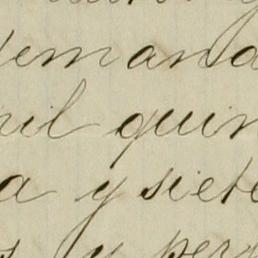 demand
mil quin
a y siete
s y per